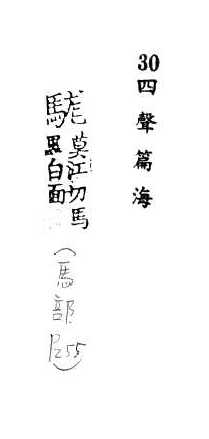 30四聲篇海
駹莫江切馬
黑白面
(馬部P255)